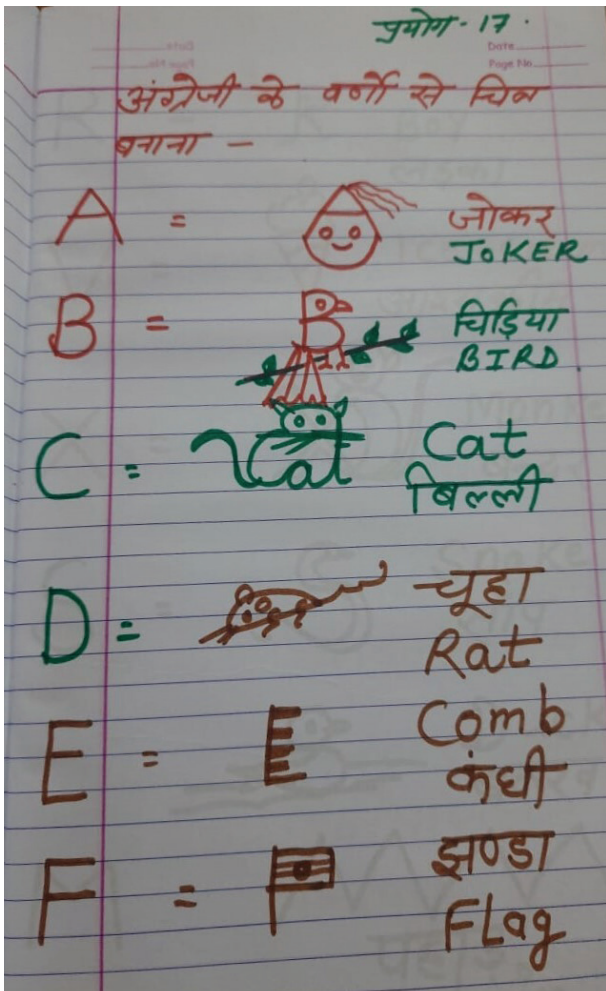 प्रयोग - 17.
Date
Page No.
अंग्रेजी के वर्णो से चित्र
बनाना -
A = जोकर
JOKER
B = चिड़िया
BIRD
C = Cat Cat
बिल्ली
D = चूहा
Rat
E = E Comb
कंघी
F = झण्डा
FLag